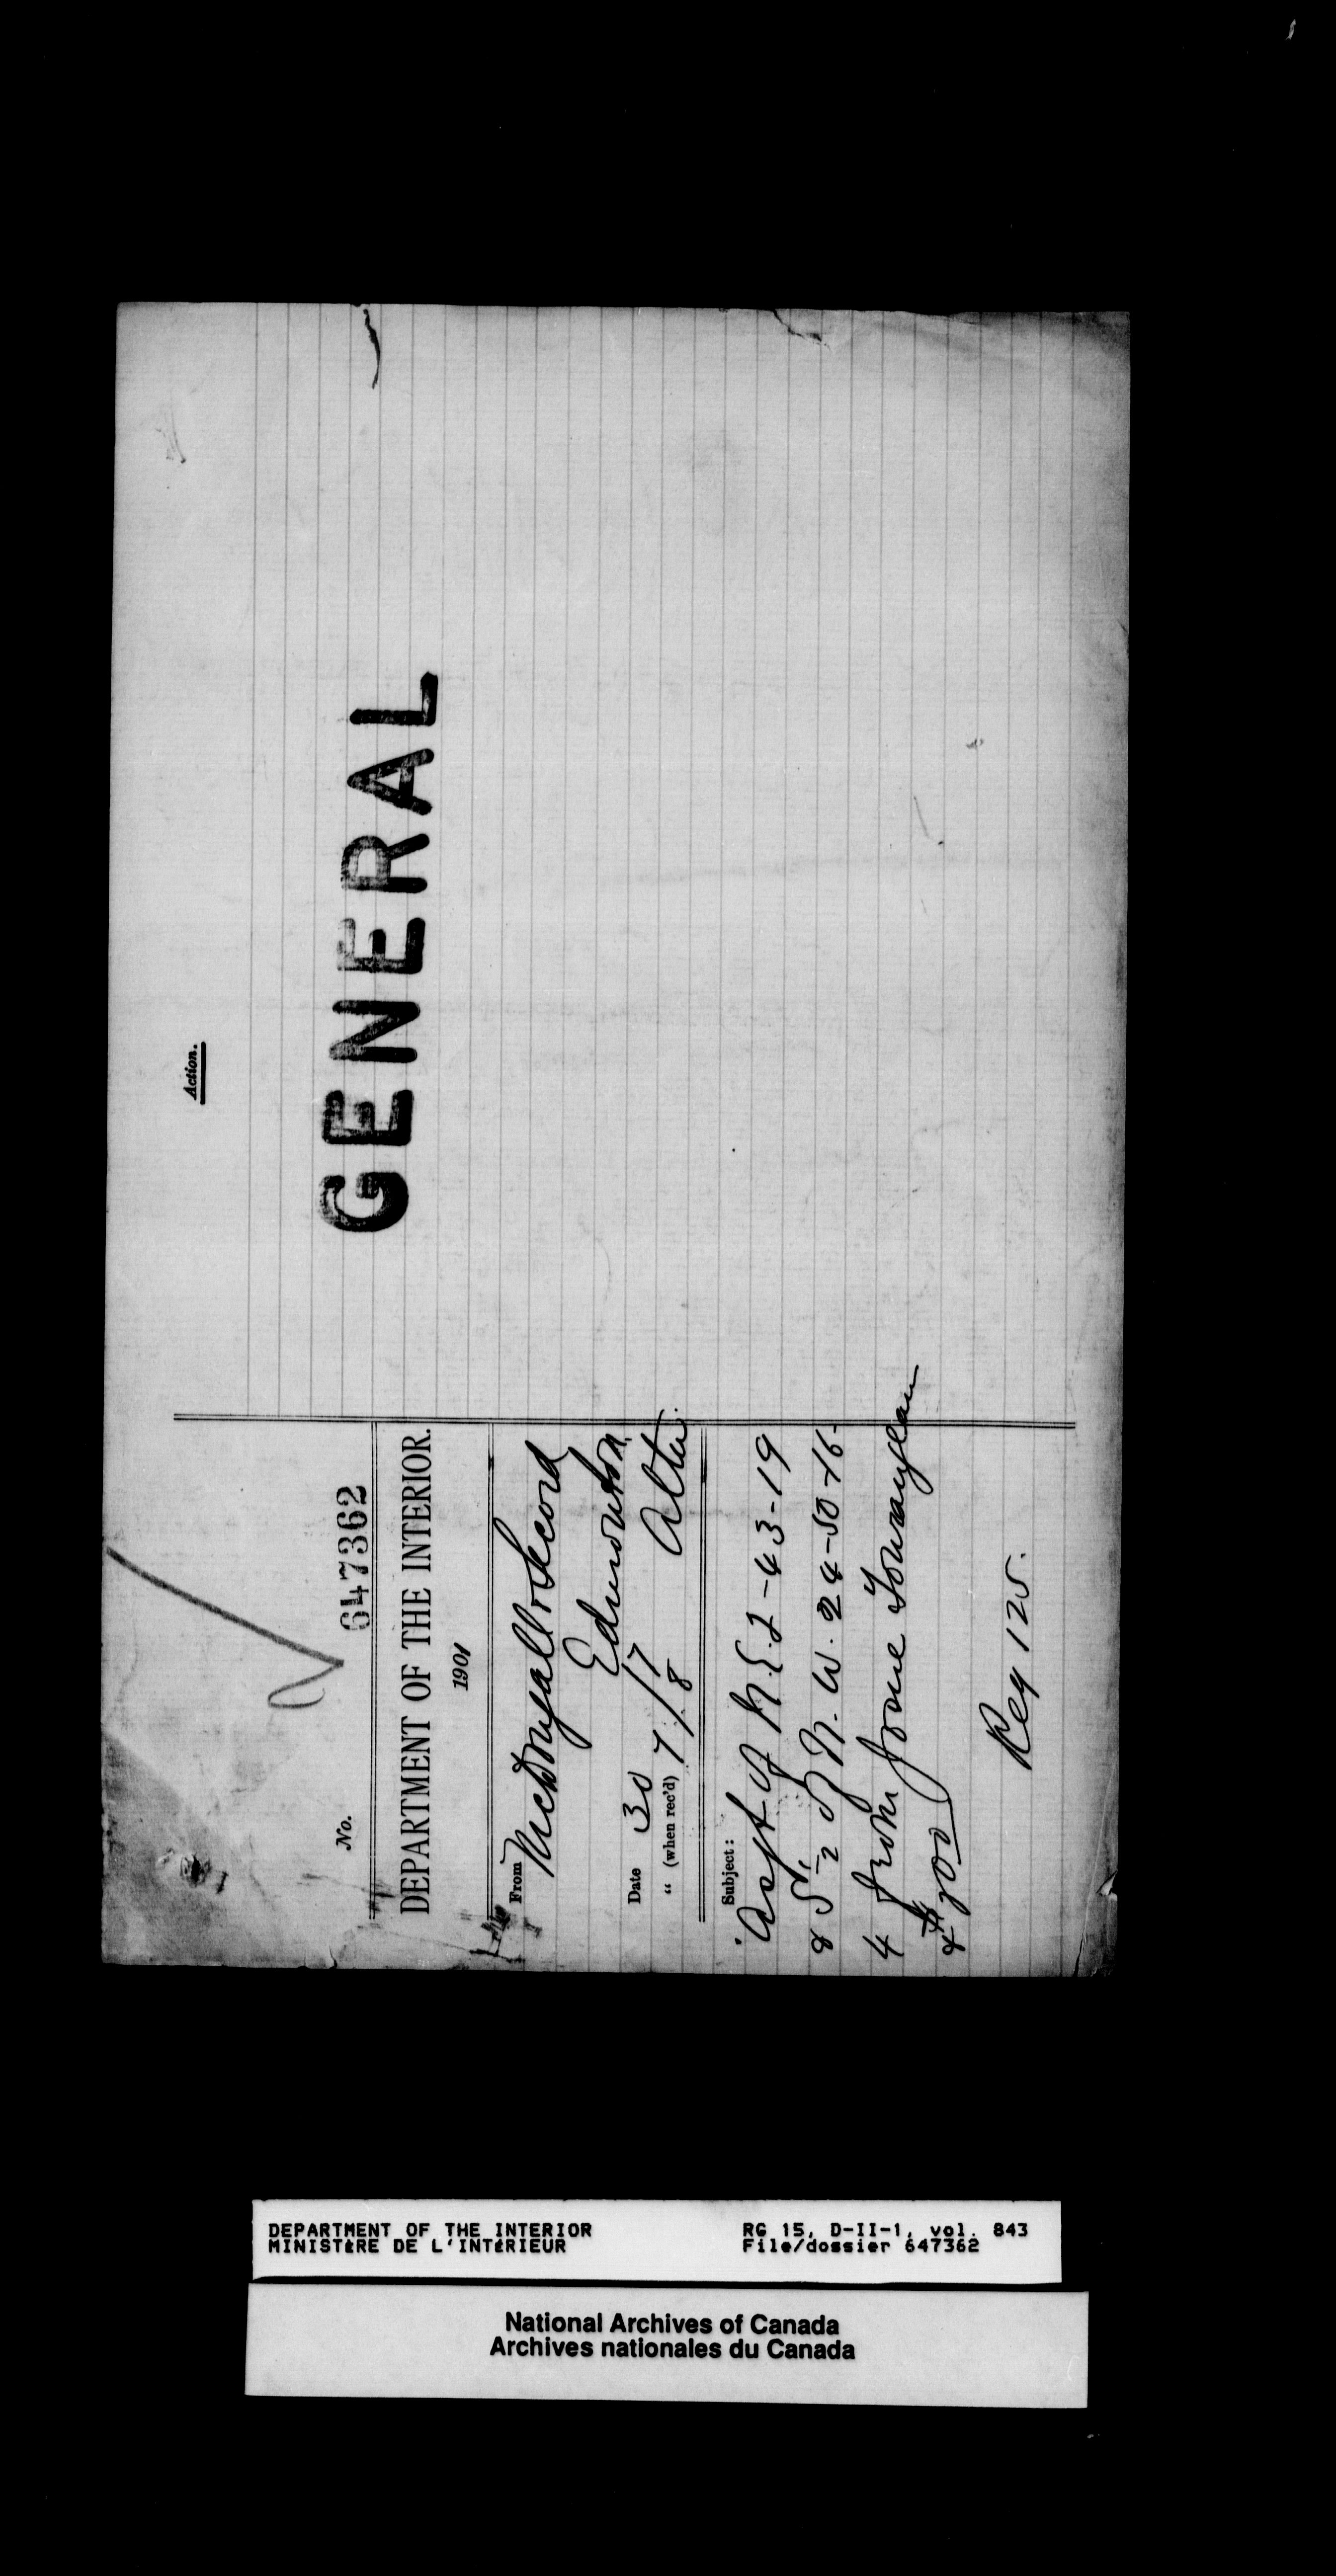 No. 647362
DEPARTMENT OF THE INTERIOR.
1901
From McDougall & Secord
Edmonton
Alta.
Date 30/7
" (when rec'd) 7/8
Subject:
Asst of N.E. 2-43-19
& S ½ of N.W. 24-50-16-
4 from
& $200
Reg 125.
Action.
GENERAL
DEPARTMENT OF THE INTERIOR
MINISTÈRE DE L'INTÉRIEUR
RG 15, D-II-1, vol. 843
File/dossier 647362
National Archives of Canada
Archives nationales du Canada